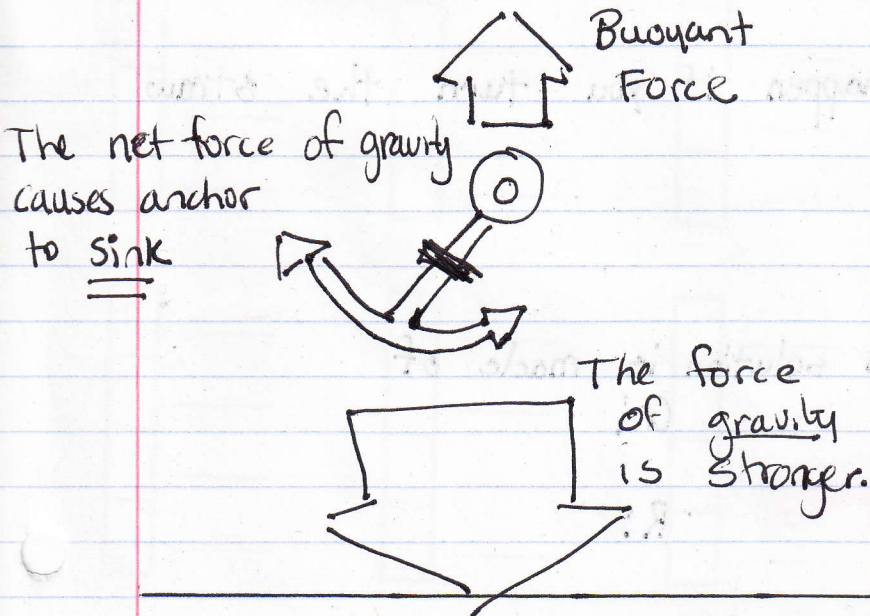 Buoyant
Force
The net force of gravity
causes anchor
to sink
The force
of gravity
is stronger.